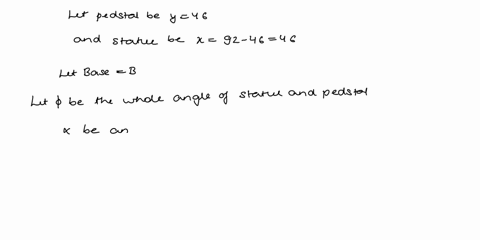 Let pedstal be y=46
and statue be x = 92-46=46
Let Base = B
Let ϕ be the whole angle of statue and pedstal
α be an